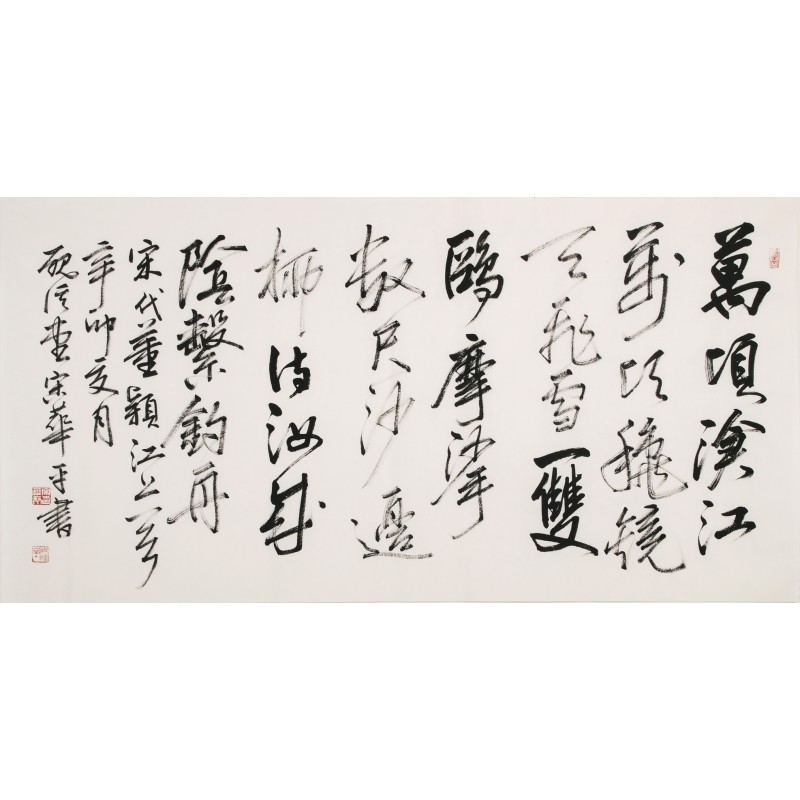 萬頃滄江
萬頃穐鏡
天飛雪一雙
鷗摩挲
數尺沙邊
柳待汝成
陰繫釣舟
宋代董穎江上
辛卯夏月
堂宋華平書